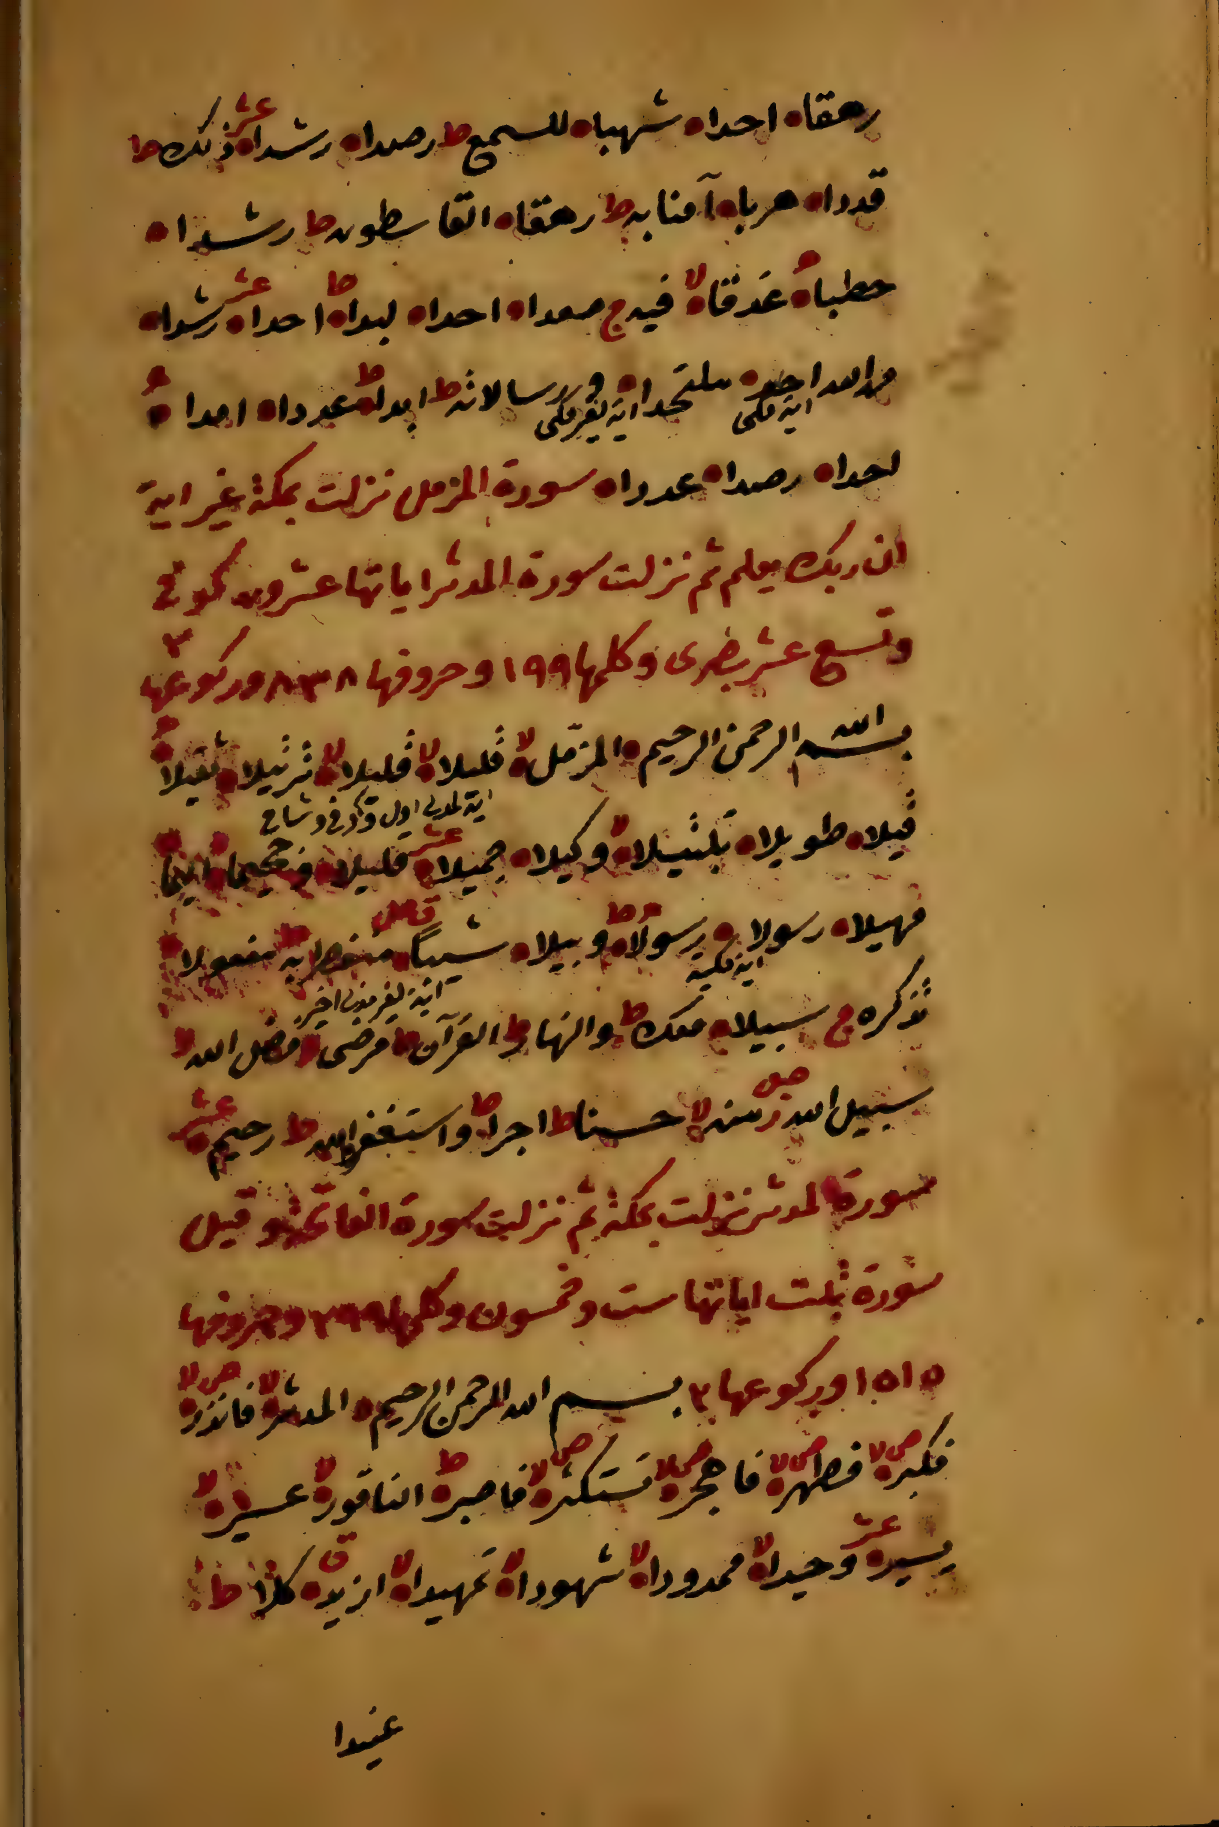 رهقاه احداه شهباه للسمع ط رصداه رشداه عشر ذلك ط
قدداه هرباه آمنا به ط رهقاه القاسطون ط رشداه
حطباه غدقاه لا فيه ج صعداه احداه لبداه ط احداه عشر رشداه
من الله احد ملتحداه ورسالاته ط ابداه ط عدداه امداه
اية مكى اية لغير مكى
احداه رصداه عدداه سورة المزمل نزلت بمكة غير اية
ان ربك يعلم ثم نزلت سورة المدثر اياتها عشرون كوفى
وتسع عشر بصرى وكلمها ١٩٩ وحروفها ٨٣٨ وركوعها ٢
بسم الله الرحمن الرحيم ه المزمل لا قليلاه لا قليلاه لا ترتيلاه ثقيلاه
اية لمدنى اول وكوفى وشامى
قيلاه طويلاه تبتيلاه وكيلاه جميلاه عشر قليلاه وجحيماه اليماه
مهيلاه رسولاه رسولاه ط وبيلاه شيباه منفطر به ط مفعولاه
اية مكية اية لغير مدنى اخير
تذكره ج سبيلاه معك ط والنهار ط القرآن ط مرضى لا فضل الله لا
سبيل الله ز صلى منه لا حسنا ط اجراه ط واستغفروا الله ط رحيم ه عشر
سورة المدثر نزلت بمكة ثم نزلت سورة الفاتحة وقيل
سورة تبت اياتها ست وخمسون وكلمها وحروفها
١٥١٥ وركوعها ٢ بسم الله الرحمن الرحيم ه المدثر لا فانذر ص لا
فكبر ص لا فطهر ص لا فاهجر ص لا تستكثر ص لا فاصبر ط الناقور لا عسير لا
يسير ه عشر وحيداه لا ممدوداه لا شهوداه لا تمهيداه لا ازيد ق كلا ط
عنيدا